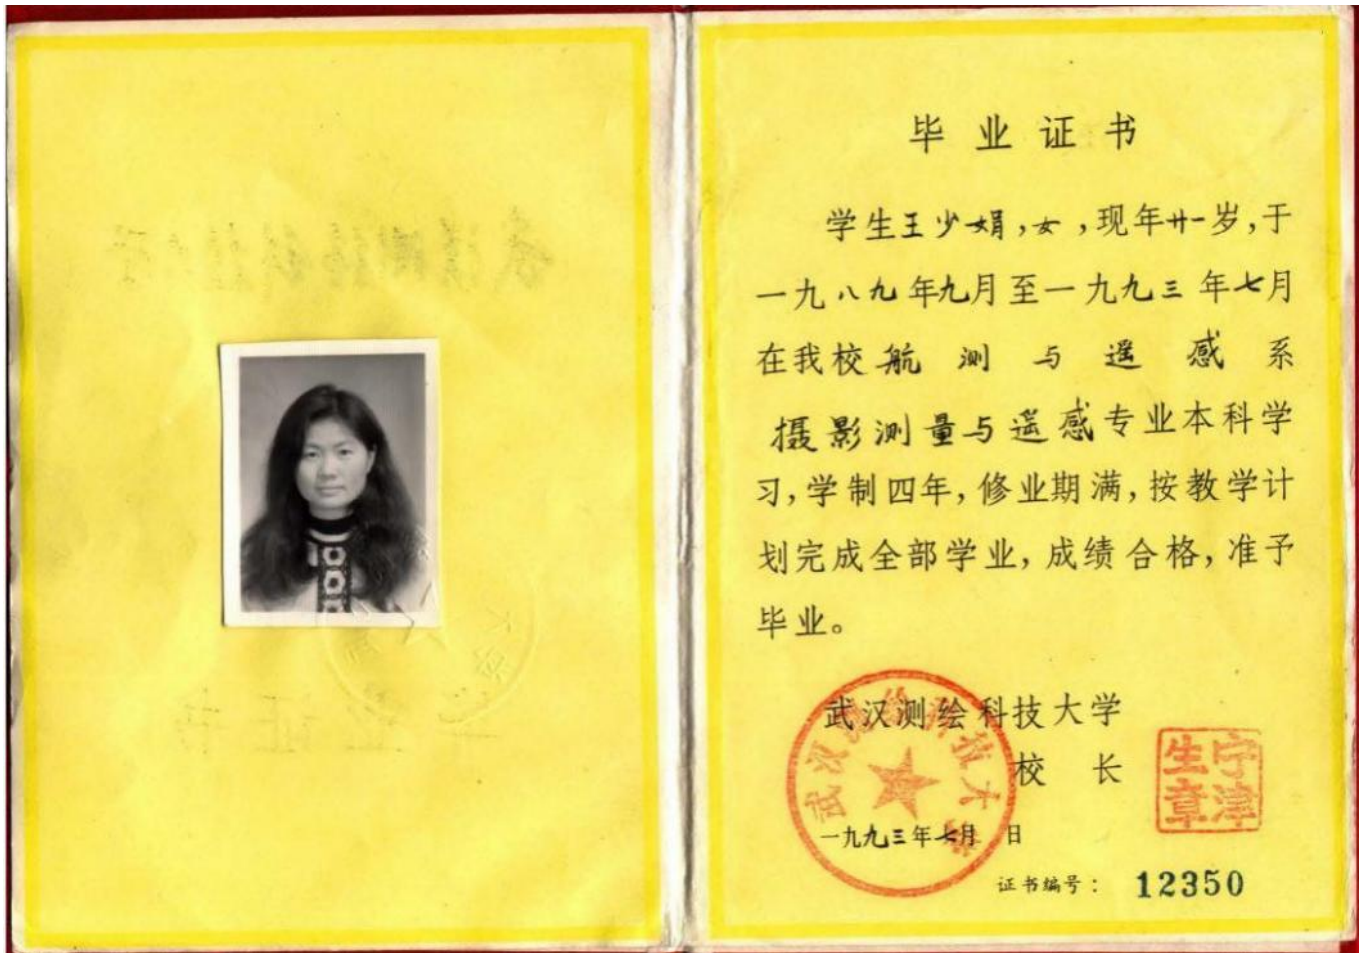 毕业证书
学生王少娟,女,现年廿一岁,于
一九八九年九月至一九九三年七月
在我校航测与遥感系
摄影测量与遥感专业本科学
习,学制四年,修业期满,按教学计
划完成全部学业,成绩合格,准予
毕业。
武汉测绘科技大学
校长
宁津
生章
武汉测绘科技大学
一九九三年七月 日
证书编号: 12350